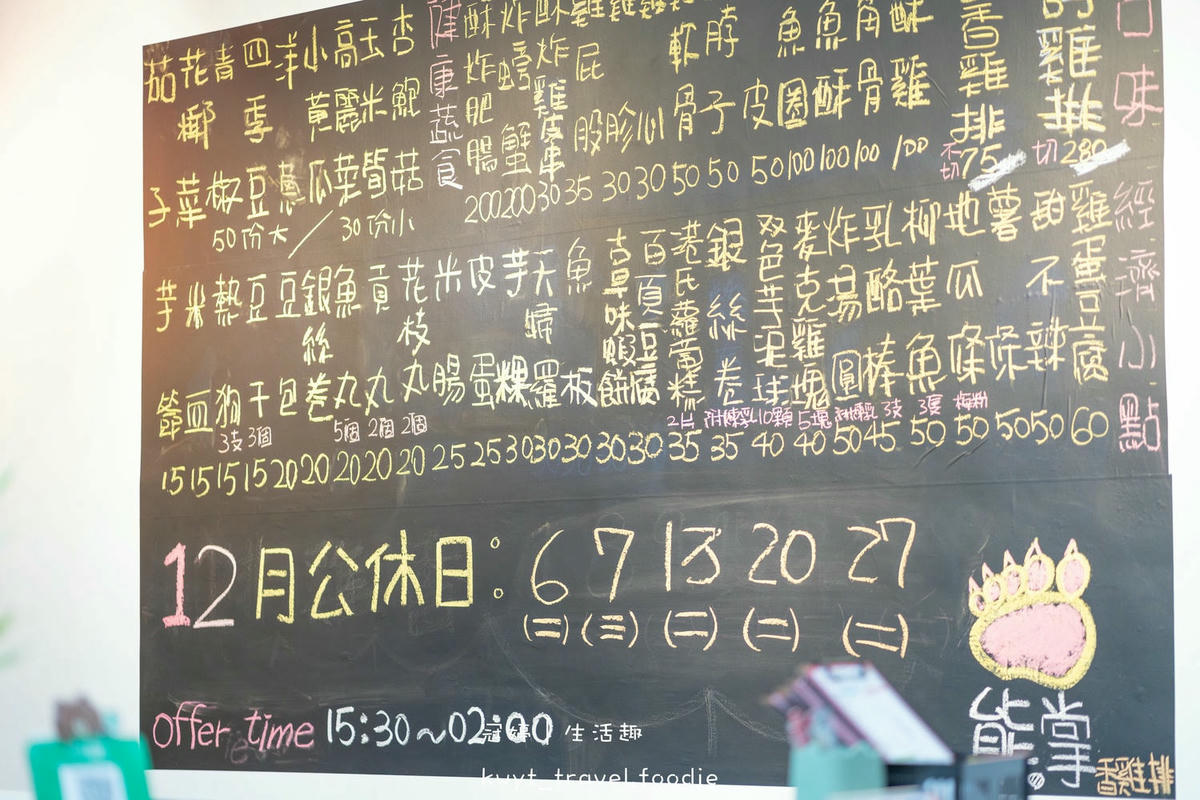 口味
的雞排 切280
香雞排 不切75
酥雞 100
角骨 100
魚酥 100
魚圈 100
皮 50
脖子 50
軟骨 50
心 30
胗 30
雞屁股 35
酥炸雞皮串 30
炸螃蟹 200
酥炸肥腸 200
健康蔬食
杏鮑菇
玉米筍
高麗菜
小黃瓜
洋蔥
四季豆
青椒
花椰菜
茄子
50份大/30份小
經濟小點
雞蛋豆腐 60
甜不辣 50
薯條 50
地瓜條 梅粉 50
柳葉魚 3隻 50
乳酪棒 3支 45
炸湯圓 附煉乳 50
麥克雞塊 5塊 40
双色芋泥球 10顆 40
銀絲卷 附煉乳 35
港氏蘿蔔糕 2片 35
百頁豆腐 30
古早味蝦餅 30
魚板 30
天婦羅 30
芋粿 30
皮蛋 25
米腸 25
花枝丸 2個 20
貢丸 2個 20
魚丸 5個 20
銀絲卷 20
豆包 20
豆干 3個 15
熱狗 3支 15
米血 15
芋 15
12月公休日: 6(二) 7(三) 13(二) 20(二) 27(二)
offer time 15:30~02:00
生活趣
kuyt_travel.foodie
能掌
香雞排